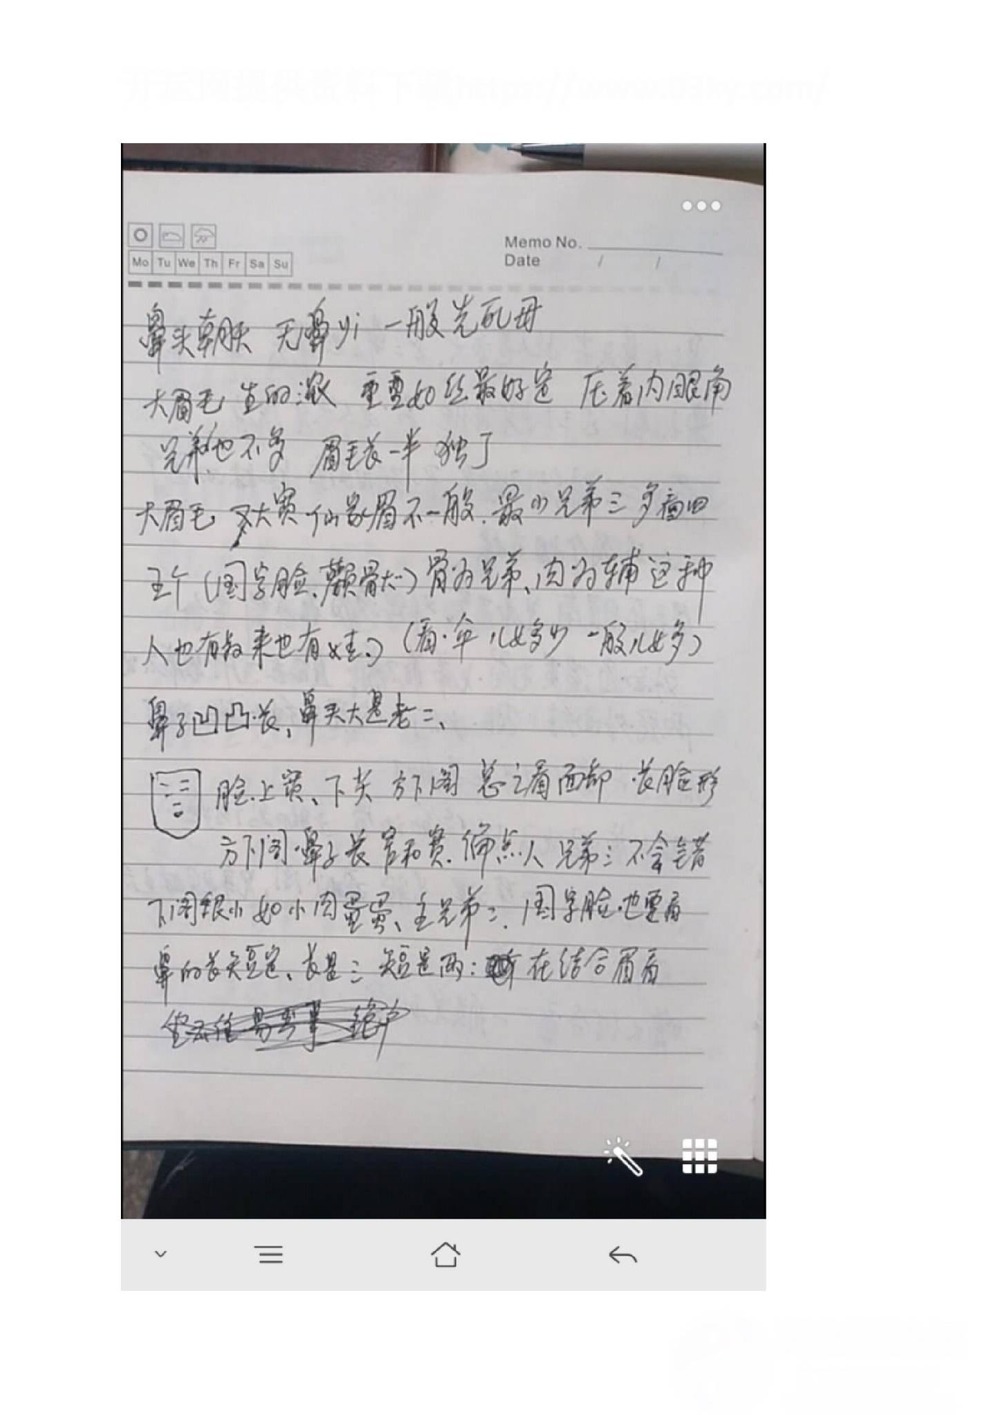 Memo No.
Date / /
Mo Tu We Th Fr Sa Su
鼻头朝天 无鼻yi 一般先死母
大眉毛 生的浓 重要如丝最好定 压着内眼角
兄弟也不多 眉毛长一半 独丁
大眉毛 大赛仙家眉不一般. 最少兄弟三多
五个(国字脸、颧骨大)骨为兄弟、肉为辅 这种
人也有教来也有(看·伞儿女多少 一般儿女多)
鼻子凹凸长, 鼻头大是老二、
脸.上宽、下尖 方下阁 总之看面部 长脸形
方下阁·鼻子长 官和宽. 偏点人 兄弟三不会错
下阁很小 如小肉蛋蛋、主兄弟二. 国字脸也要看
鼻的长短定、长是三 短是两: 在结合眉看